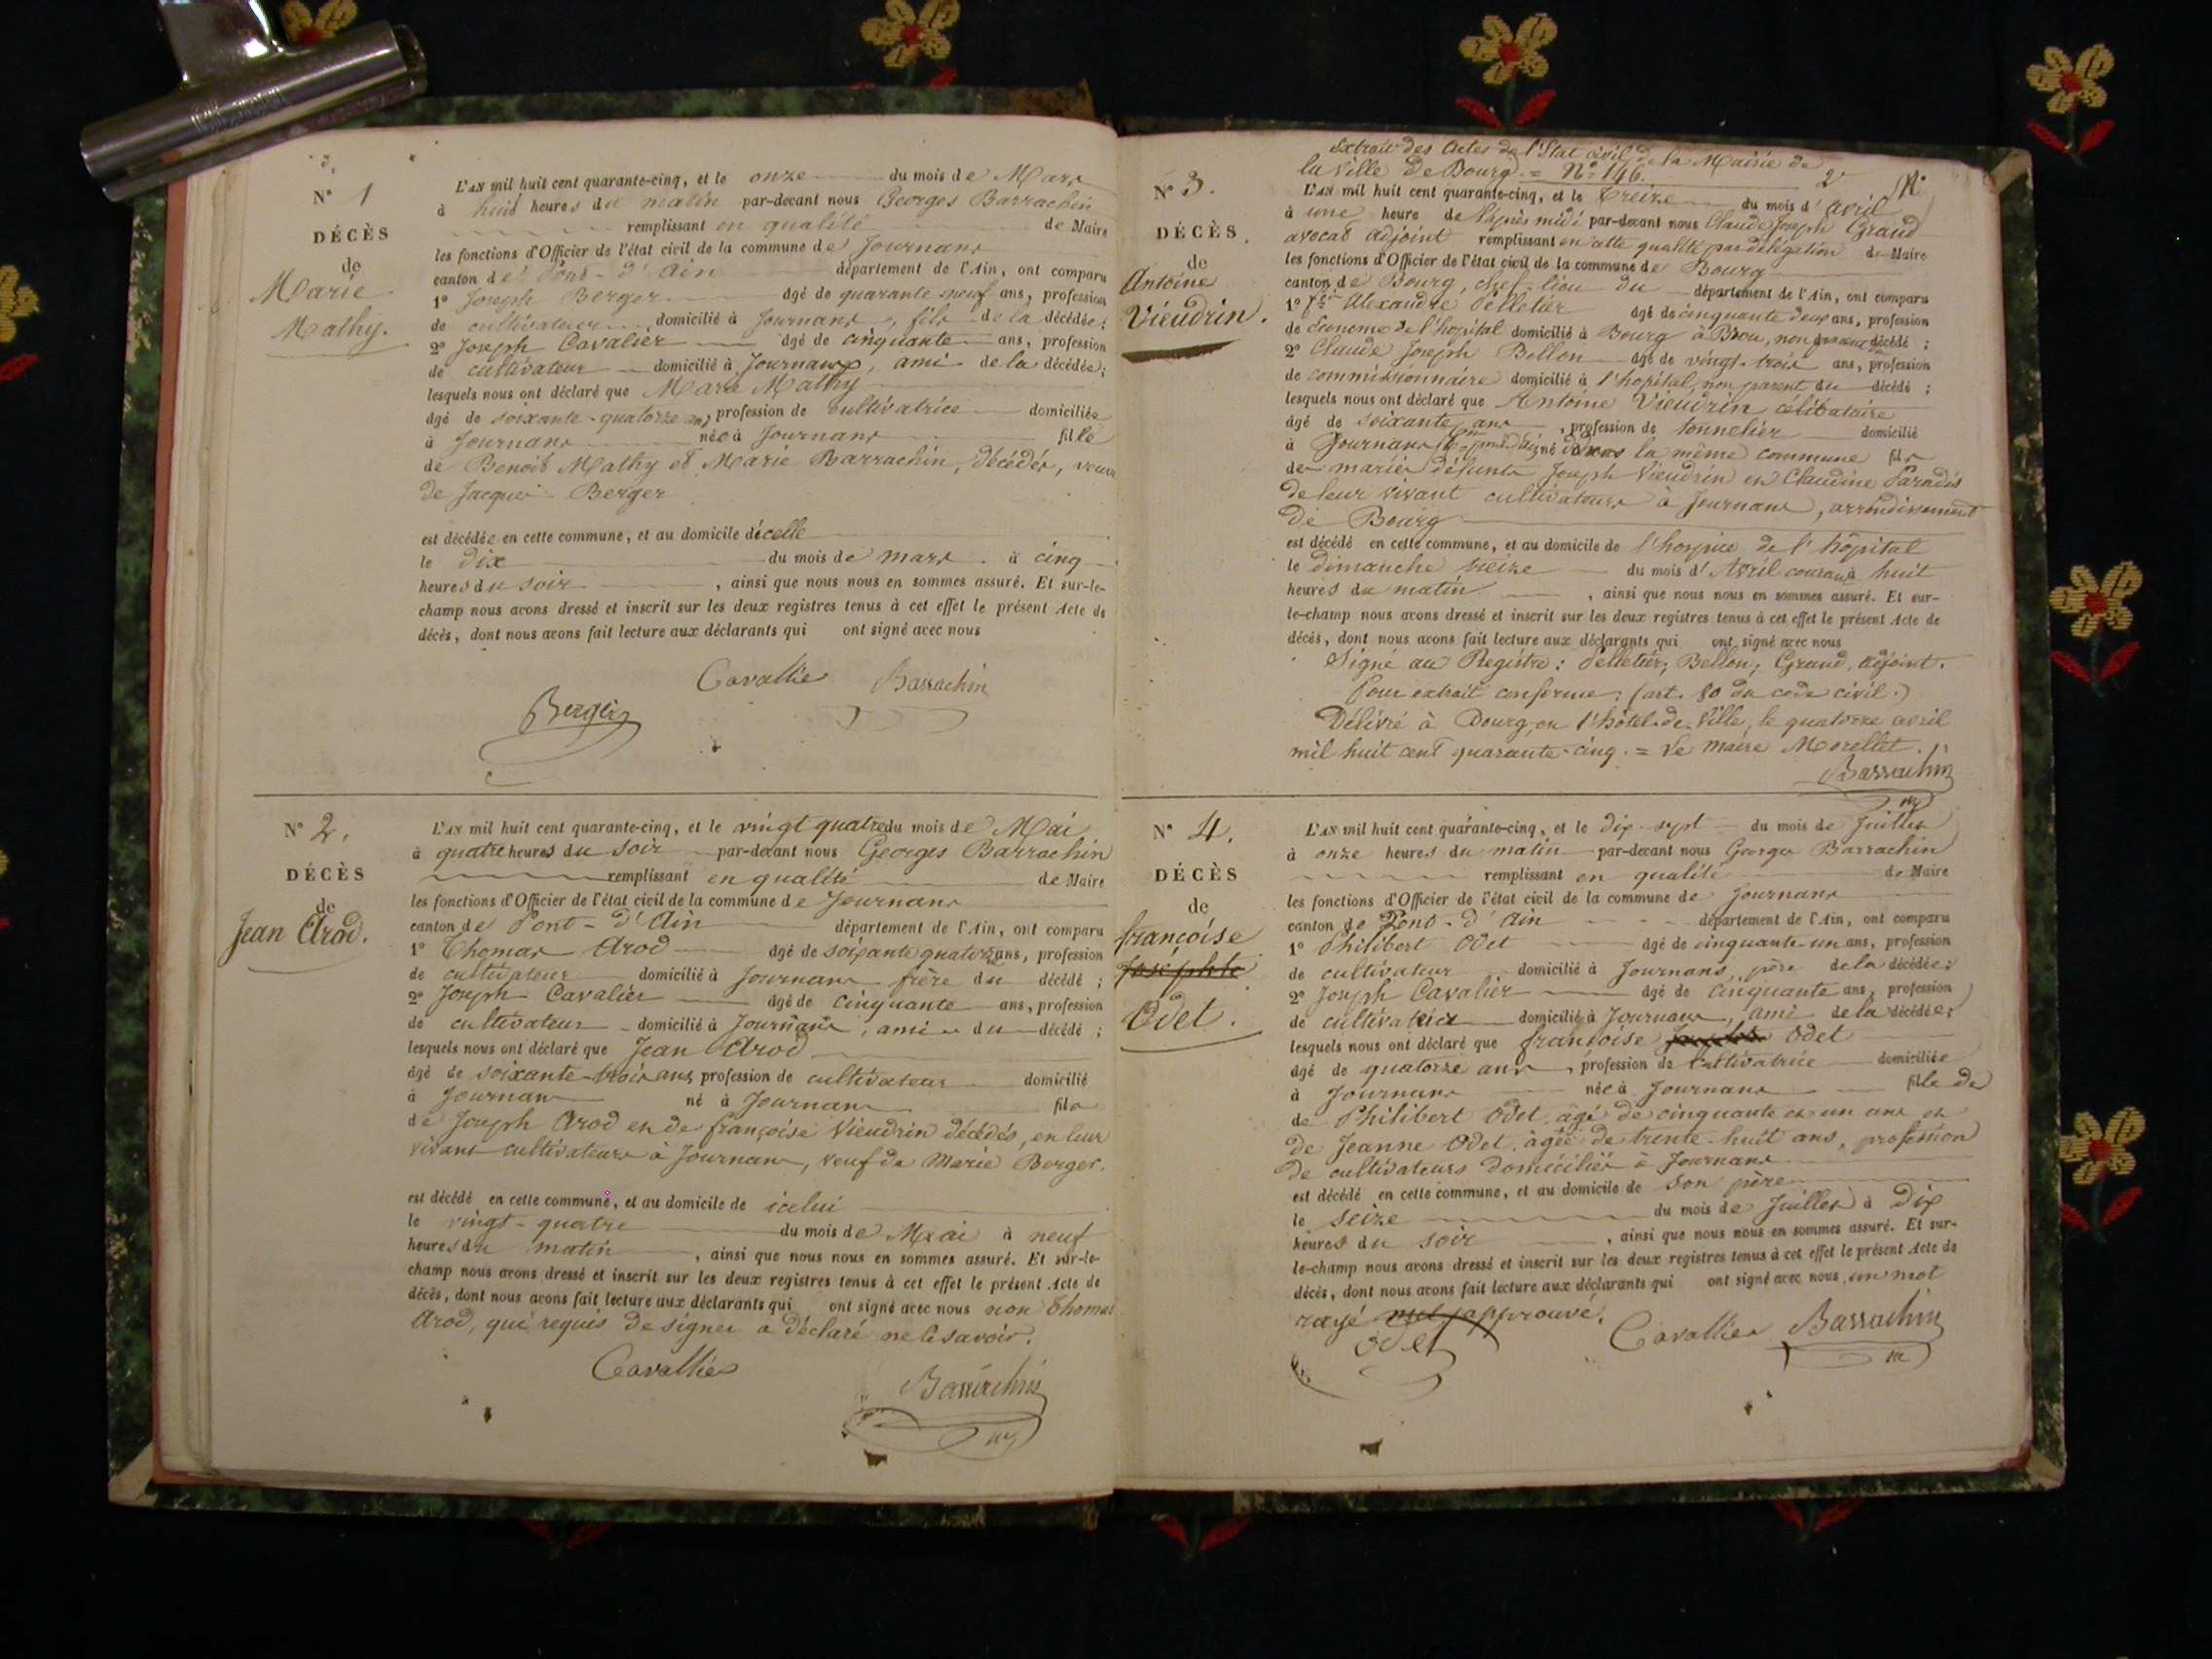 N° 1
DÉCÈS
de
Marie
Mathy.
L'AN mil huit cent quarante-cinq, et le onze du mois de Mars
à huit heures du matin par-devant nous Georges Barrachin
remplissant en qualité de Maire
les fonctions d'Officier de l'état civil de la commune de Journans
canton de Pont-d'Ain département de l'Ain, ont comparu
1° Joseph Berger âgé de quarante neuf ans, profession
de cultivateur domicilié à Journans, fils de la décédée;
2° Joseph Cavalier âgé de cinquante ans, profession
de cultivateur domicilié à Journans, ami de la décédée;
lesquels nous ont déclaré que Marie Mathy
âgé de soixante-quatorze ans, profession de cultivatrice domiciliée
à Journans née à Journans fille
de Benoît Mathy et Marie Barrachin, décédés, veuve
de Jacques Berger
est décédée en cette commune, et au domicile d'icelle
le dix du mois de mars à cinq
heures du soir, ainsi que nous nous en sommes assuré. Et sur-le-
champ nous avons dressé et inscrit sur les deux registres tenus à cet effet le présent Acte de
décès, dont nous avons fait lecture aux déclarants qui ont signé avec nous
Cavallier Barrachin
Berger
N° 2.
DÉCÈS
de
Jean Arod.
L'AN mil huit cent quarante-cinq, et le vingt quatre du mois de Mai
à quatre heures du soir par-devant nous Georges Barrachin
remplissant en qualité de Maire
les fonctions d'Officier de l'état civil de la commune de Journans
canton de Pont-d'Ain département de l'Ain, ont comparu
1° Thomas Arod âgé de soixante quatorze ans, profession
de cultivateur domicilié à Journans frère du décédé;
2° Joseph Cavalier âgé de cinquante ans, profession
de cultivateur domicilié à Journans, ami du décédé;
lesquels nous ont déclaré que Jean Arod
âgé de soixante-trois ans, profession de cultivateur domicilié
à Journans né à Journans fils
de Joseph Arod et de françoise Vieudrin décédés, en leur
vivant cultivateurs à Journans, veuf de Marie Berger.
est décédé en cette commune, et au domicile de icelui
le vingt-quatre du mois de Mai à neuf
heures du matin, ainsi que nous nous en sommes assuré. Et sur-le-
champ nous avons dressé et inscrit sur les deux registres tenus à cet effet le présent Acte de
décès, dont nous avons fait lecture aux déclarants qui ont signé avec nous non Thomas
Arod, qui requis de signer a déclaré ne le savoir.
Cavallier
Barrachin
Extrait des Actes de l'Etat civil de la Mairie de
la Ville de Bourg. = N° 146.
2
N° 3.
DÉCÈS.
de
Antoine
Vieudrin.
L'AN mil huit cent quarante-cinq, et le treize du mois d'avril
à une heure de l'après midi par-devant nous Claude Joseph Graud
avocat adjoint remplissant en cette qualité par délégation de Maire
les fonctions d'Officier de l'état civil de la commune de Bourg
canton de Bourg, chef-lieu du département de l'Ain, ont comparu
1° Alexandre Pelletier âgé de cinquante deux ans, profession
de Econome de l'hôpital domicilié à Bourg à Brou, non parent du décédé;
2° Claude Joseph Bellon âgé de vingt-trois ans, profession
de commissionnaire domicilié à l'hôpital, non parent du décédé;
lesquels nous ont déclaré que Antoine Vieudrin célibataire
âgé de soixante ans, profession de tonnelier domicilié
à Journans né dans la même commune fils
des mariés défunts Joseph Vieudrin et Claudine Paradis
de leur vivant cultivateurs à Journans, arrondissement
de Bourg
est décédé en cette commune, et au domicile de l'hospice de l'hôpital
le dimanche treize du mois d'Avril courant à huit
heures du matin, ainsi que nous nous en sommes assuré. Et sur-
le-champ nous avons dressé et inscrit sur les deux registres tenus à cet effet le présent Acte de
décès, dont nous avons fait lecture aux déclarants qui ont signé avec nous
Signé au Registre: Pelletier; Bellon; Graud, adjoint.
Pour extrait conforme: (art. 80 du code civil.)
Délivré à Bourg, en l'hôtel-de-Ville, le quatorze avril
mil huit cent quarante-cinq. = Le maire Morellet.
Barrachin
N° 4.
DÉCÈS
de
françoise
Josephte
Odet.
L'AN mil huit cent quarante-cinq, et le dix-sept du mois de Juillet
à onze heures du matin par-devant nous Georges Barrachin
remplissant en qualité de Maire
les fonctions d'Officier de l'état civil de la commune de Journans
canton de Pont-d'Ain département de l'Ain, ont comparu
1° Philibert Odet âgé de cinquante-un ans, profession
de cultivateur domicilié à Journans, père de la décédée;
2° Joseph Cavalier âgé de cinquante ans, profession
de cultivateur domicilié à Journans, ami de la décédée;
lesquels nous ont déclaré que françoise Odet
âgé de quatorze ans, profession de Cultivatrice domiciliée
à Journans née à Journans fille de
de Philibert Odet âgé de cinquante et un ans et
de Jeanne Odet, âgée de trente-huit ans, profession
de cultivateurs domiciliés à Journans
est décédé en cette commune, et au domicile de son père
le seize du mois de Juillet à dix
heures du soir, ainsi que nous nous en sommes assuré. Et sur-
le-champ nous avons dressé et inscrit sur les deux registres tenus à cet effet le présent Acte de
décès, dont nous avons fait lecture aux déclarants qui ont signé avec nous, un mot
rayé approuvé.
Odet Cavallier Barrachin